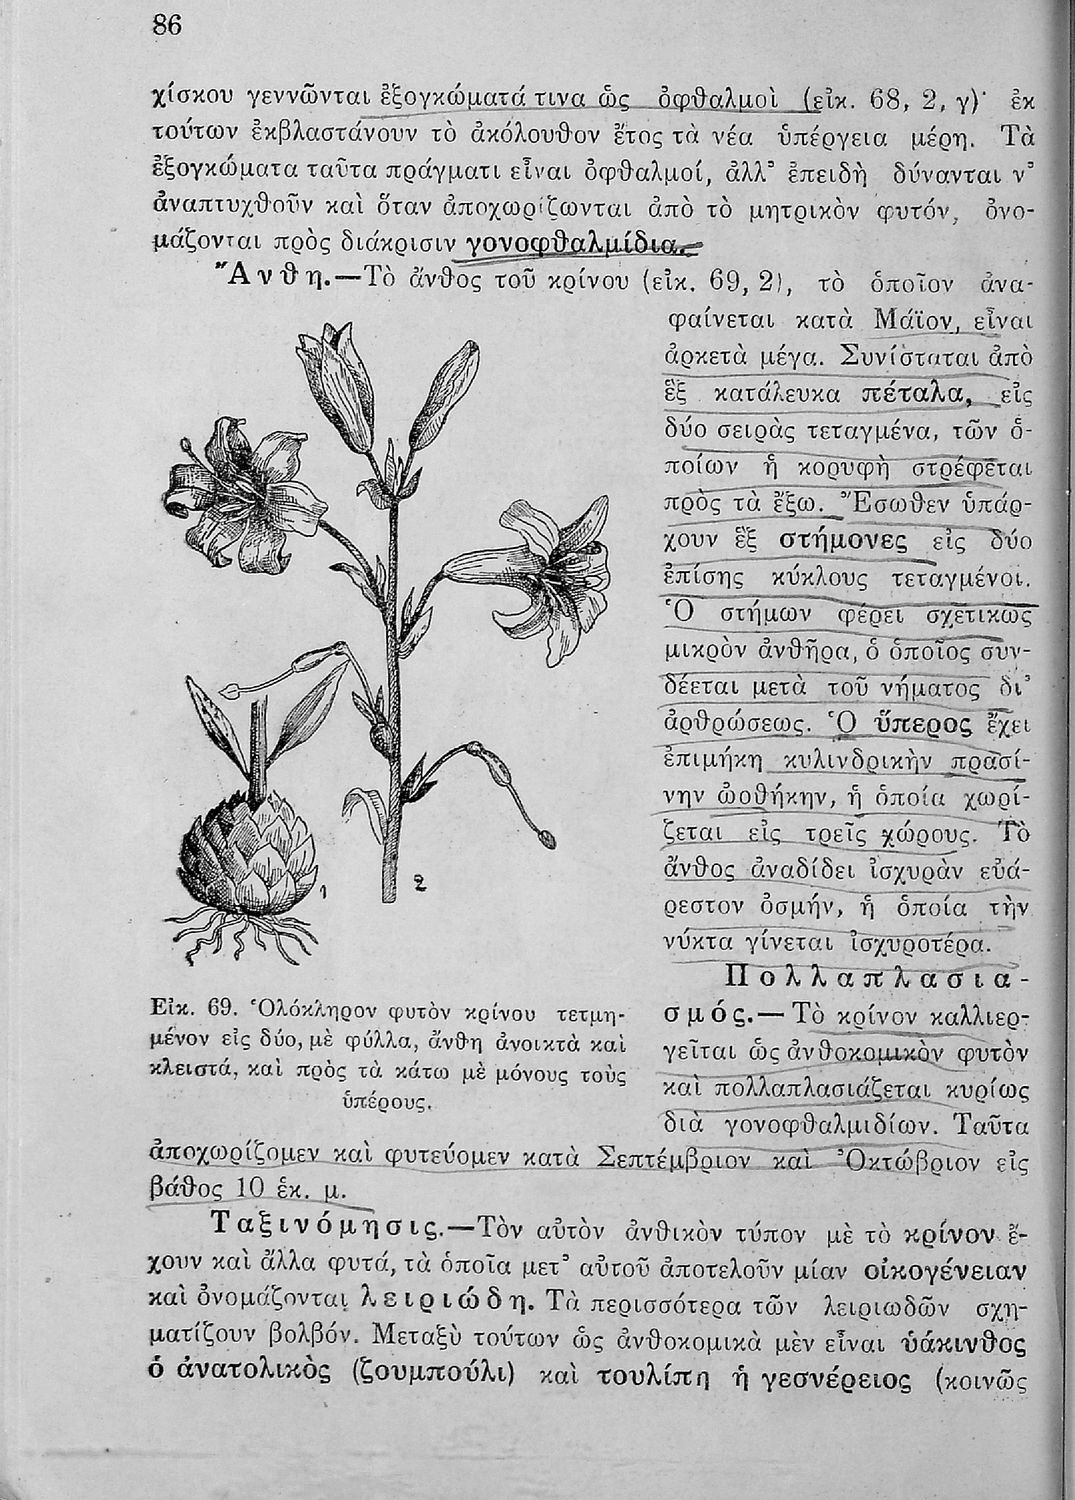 86
χίσκου γεννῶνται ἐξογκώματά τινα ὡς ὀφθαλμοὶ (εἰκ. 68, 2, γ)· ἐκ
τούτων ἐκβλαστάνουν τὸ ἀκόλουθον ἔτος τὰ νέα ὑπέργεια μέρη. Τὰ
ἐξογκώματα ταῦτα πράγματι εἶναι ὀφθαλμοί, ἀλλ’ ἐπειδὴ δύνανται ν’
ἀναπτυχθοῦν καὶ ὅταν ἀποχωρίζωνται ἀπὸ τὸ μητρικὸν φυτόν, ὀνο-
μάζονται πρὸς διάκρισιν γονοφθαλμίδια.
Ἄνθη.—Τὸ ἄνθος τοῦ κρίνου (εἰκ. 69, 2), τὸ ὁποῖον ἀνα-
φαίνεται κατὰ Μάϊον, εἶναι
ἀρκετὰ μέγα. Συνίσταται ἀπὸ
ἓξ κατάλευκα πέταλα, εἰς
δύο σειρὰς τεταγμένα, τῶν ὁ-
ποίων ἡ κορυφὴ στρέφεται
πρὸς τὰ ἔξω. Ἔσωθεν ὑπάρ-
χουν ἓξ στήμονες εἰς δύο
ἐπίσης κύκλους τεταγμένοι.
Ὁ στήμων φέρει σχετικῶς
μικρὸν ἀνθῆρα, ὁ ὁποῖος συν-
δέεται μετὰ τοῦ νήματος δι’
ἀρθρώσεως. Ὁ ὕπερος ἔχει
ἐπιμήκη κυλινδρικὴν πρασί-
νην ὠοθήκην, ἡ ὁποία χωρί-
ζεται εἰς τρεῖς χώρους. Τὸ
ἄνθος ἀναδίδει ἰσχυρὰν εὐά-
ρεστον ὀσμήν, ἡ ὁποία τὴν
νύκτα γίνεται ἰσχυροτέρα.
Πολλαπλασια-
σμός.—Τὸ κρίνον καλλιερ-
γεῖται ὡς ἀνθοκομικὸν φυτὸν
καὶ πολλαπλασιάζεται κυρίως
διὰ γονοφθαλμιδίων. Ταῦτα
1
2
Εἰκ. 69. Ὁλόκληρον φυτὸν κρίνου τετμη-
μένον εἰς δύο, μὲ φύλλα, ἄνθη ἀνοικτὰ καὶ
κλειστά, καὶ πρὸς τὰ κάτω μὲ μόνους τοὺς
ὑπέρους.
ἀποχωρίζομεν καὶ φυτεύομεν κατὰ Σεπτέμβριον καὶ Ὀκτώβριον εἰς
βάθος 10 ἑκ. μ.
Ταξινόμησις.—Τὸν αὐτὸν ἀνθικὸν τύπον μὲ τὸ κρίνον ἔ-
χουν καὶ ἄλλα φυτά, τὰ ὁποῖα μετ’ αὐτοῦ ἀποτελοῦν μίαν οἰκογένειαν
καὶ ὀνομάζονται λειριώδη. Τὰ περισσότερα τῶν λειριωδῶν σχη-
ματίζουν βολβόν. Μεταξὺ τούτων ὡς ἀνθοκομικὰ μὲν εἶναι ὑάκινθος
ὁ ἀνατολικὸς (ζουμπούλι) καὶ τουλίπη ἡ γεσνέρειος (κοινῶς